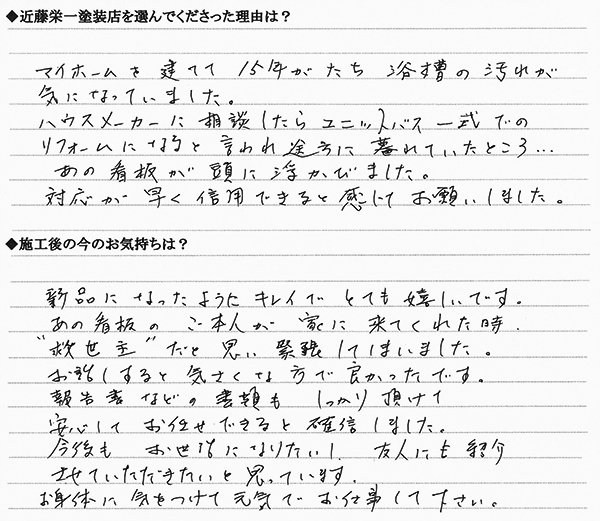 ◆近藤栄一塗装店を選んでくださった理由は？
マイホームを建てて 15年がたち 浴槽の汚れが
気になっていました。
ハウスメーカーに相談したらユニットバス一式での
リフォームになると言われ途方に暮れていたところ…
あの看板が頭に浮かびました。
対応が早く信用できると感じてお願いしました。
◆施工後の今のお気持ちは？
新品になったようにキレイでとても嬉しいです。
あの看板のご本人が家に来てくれた時、
"救世主"だと思い緊張してしまいました。
お話しすると気さくな方で良かったです。
報告書などの書類もしっかり頂けて
安心してお任せできると確信しました。
今後もお世話になりたいし、友人にも紹介
させていただきたいと思っています。
お身体に気をつけて元気でお仕事して下さい。